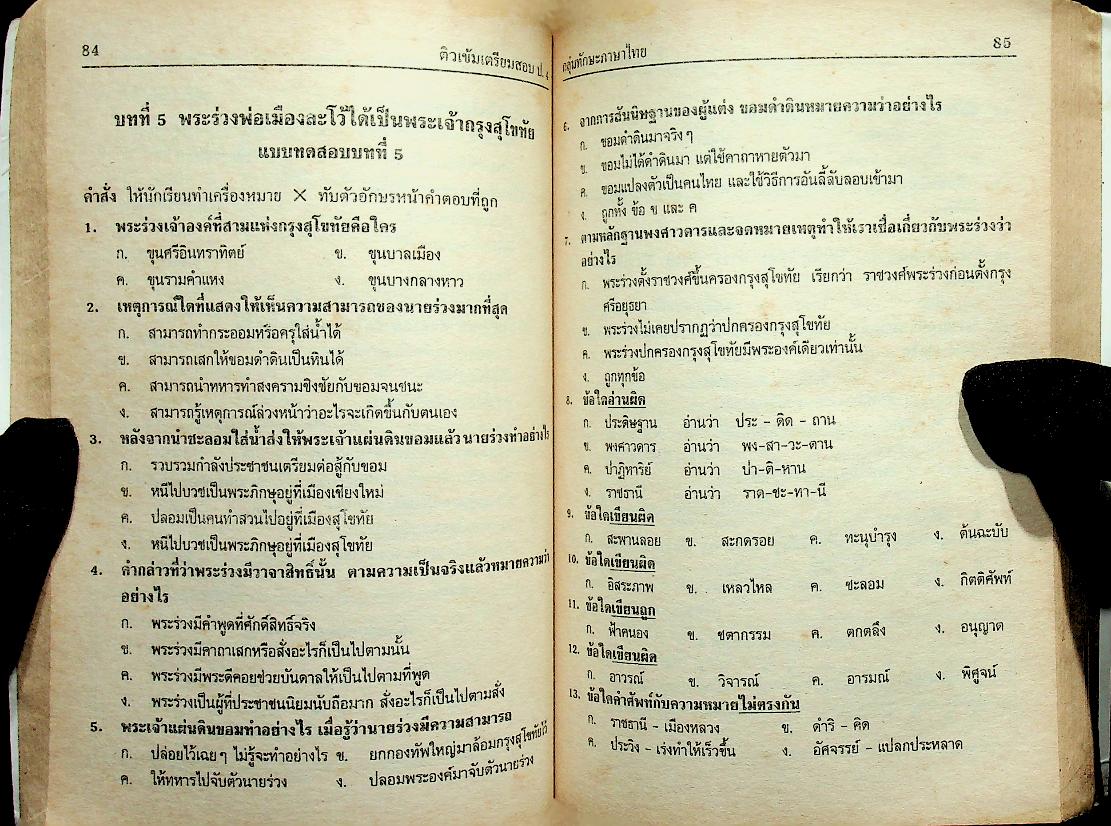 84
ติวเข้มเตรียมสอบ ป.4
บทที่ 5 พระร่วงพ่อเมืองละโว้ได้เป็นพระเจ้ากรุงสุโขทัย
แบบทดสอบบทที่ 5
คำสั่ง ให้นักเรียนทำเครื่องหมาย × ทับตัวอักษรหน้าคำตอบที่ถูก
1. พระร่วงเจ้าองค์ที่สามแห่งกรุงสุโขทัยคือใคร
ก. ขุนศรีอินทราทิตย์ ข. ขุนบาลเมือง
ค. ขุนรามคำแหง ง. ขุนบางกลางหาว
2. เหตุการณ์ใดที่แสดงให้เห็นความสามารถของนายร่วงมากที่สุด
ก. สามารถทำกระออมหรือครุใส่น้ำได้
ข. สามารถเสกให้ขอมดำดินเป็นหินได้
ค. สามารถนำทหารทำสงครามชิงชัยกับขอมจนชนะ
ง. สามารถรู้เหตุการณ์ล่วงหน้าว่าอะไรจะเกิดขึ้นกับตนเอง
3. หลังจากนำชะลอมใส่น้ำส่งให้พระเจ้าแผ่นดินขอมแล้ว นายร่วงทำอย่างไร
ก. รวบรวมกำลังประชาชนเตรียมต่อสู้กับขอม
ข. หนีไปบวชเป็นพระภิกษุอยู่ที่เมืองเชียงใหม่
ค. ปลอมเป็นคนทำสวนไปอยู่ที่เมืองสุโขทัย
ง. หนีไปบวชเป็นพระภิกษุอยู่ที่เมืองสุโขทัย
4. คำกล่าวที่ว่าพระร่วงมีวาจาสิทธิ์นั้น ตามความเป็นจริงแล้วหมายความว่า
อย่างไร
ก. พระร่วงมีคำพูดที่ศักดิ์สิทธิ์จริง
ข. พระร่วงมีคาถาเสกหรือสั่งอะไรก็เป็นไปตามนั้น
ค. พระร่วงมีพระดีคอยช่วยบันดาลให้เป็นไปตามที่พูด
ง. พระร่วงเป็นผู้ที่ประชาชนนิยมนับถือมาก สั่งอะไรก็เป็นไปตามสั่ง
5. พระเจ้าแผ่นดินขอมทำอย่างไร เมื่อรู้ว่านายร่วงมีความสามารถ
ก. ปล่อยไว้เฉยๆ ไม่รู้จะทำอย่างไร ข. ยกกองทัพใหญ่มาล้อมกรุงสุโขทัยไว้
ค. ให้ทหารไปจับตัวนายร่วง ง. ปลอมพระองค์มาจับตัวนายร่วง
กลุ่มทักษะภาษาไทย
85
6. จากการสันนิษฐานของผู้แต่ง ขอมดำดินหมายความว่าอย่างไร
ก. ขอมดำดินมาจริงๆ
ข. ขอมไม่ได้ดำดินมา แต่ใช้คาถาหายตัวมา
ค. ขอมแปลงตัวเป็นคนไทย และใช้วิธีการอันลี้ลับลอบเข้ามา
ง. ถูกทั้ง ข้อ ข และ ค
7. ตามหลักฐานพงศาวดารและจดหมายเหตุทำให้เราเชื่อเกี่ยวกับพระร่วงว่า
อย่างไร
ก. พระร่วงตั้งราชวงศ์ขึ้นครองกรุงสุโขทัย เรียกว่า ราชวงศ์พระร่วงก่อนตั้งกรุง
ศรีอยุธยา
ข. พระร่วงไม่เคยปรากฏว่าปกครองกรุงสุโขทัย
ค. พระร่วงปกครองกรุงสุโขทัยมีพระองค์เดียวเท่านั้น
ง. ถูกทุกข้อ
8. ข้อใดอ่านผิด
ก. ประดิษฐาน อ่านว่า ประ - ดิด - ถาน
ข. พงศาวดาร อ่านว่า พง-สา-วะ-ดาน
ค. ปาฏิหาริย์ อ่านว่า ปา-ติ-หาน
ง. ราชธานี อ่านว่า ราด-ชะ-ทา-นี
9. ข้อใดเขียนผิด
ก. สะพานลอย ข. สะกดรอย ค. ทะนุบำรุง ง. ต้นฉะบับ
10. ข้อใดเขียนผิด
ก. อิสระภาพ ข. เหลวไหล ค. ชะลอม ง. กิตติศัพท์
11. ข้อใดเขียนถูก
ก. ฟ้าคนอง ข. ชตากรรม ค. ตกตลึง ง. อนุญาต
12. ข้อใดเขียนผิด
ก. อาวรณ์ ข. วิจารณ์ ค. อารมณ์ ง. พิศูจน์
13. ข้อใดคำศัพท์กับความหมายไม่ตรงกัน
ก. ราชธานี - เมืองหลวง ข. ดำริ - คิด
ค. ประวิง - เร่งทำให้เร็วขึ้น ง. อัศจรรย์ - แปลกประหลาด